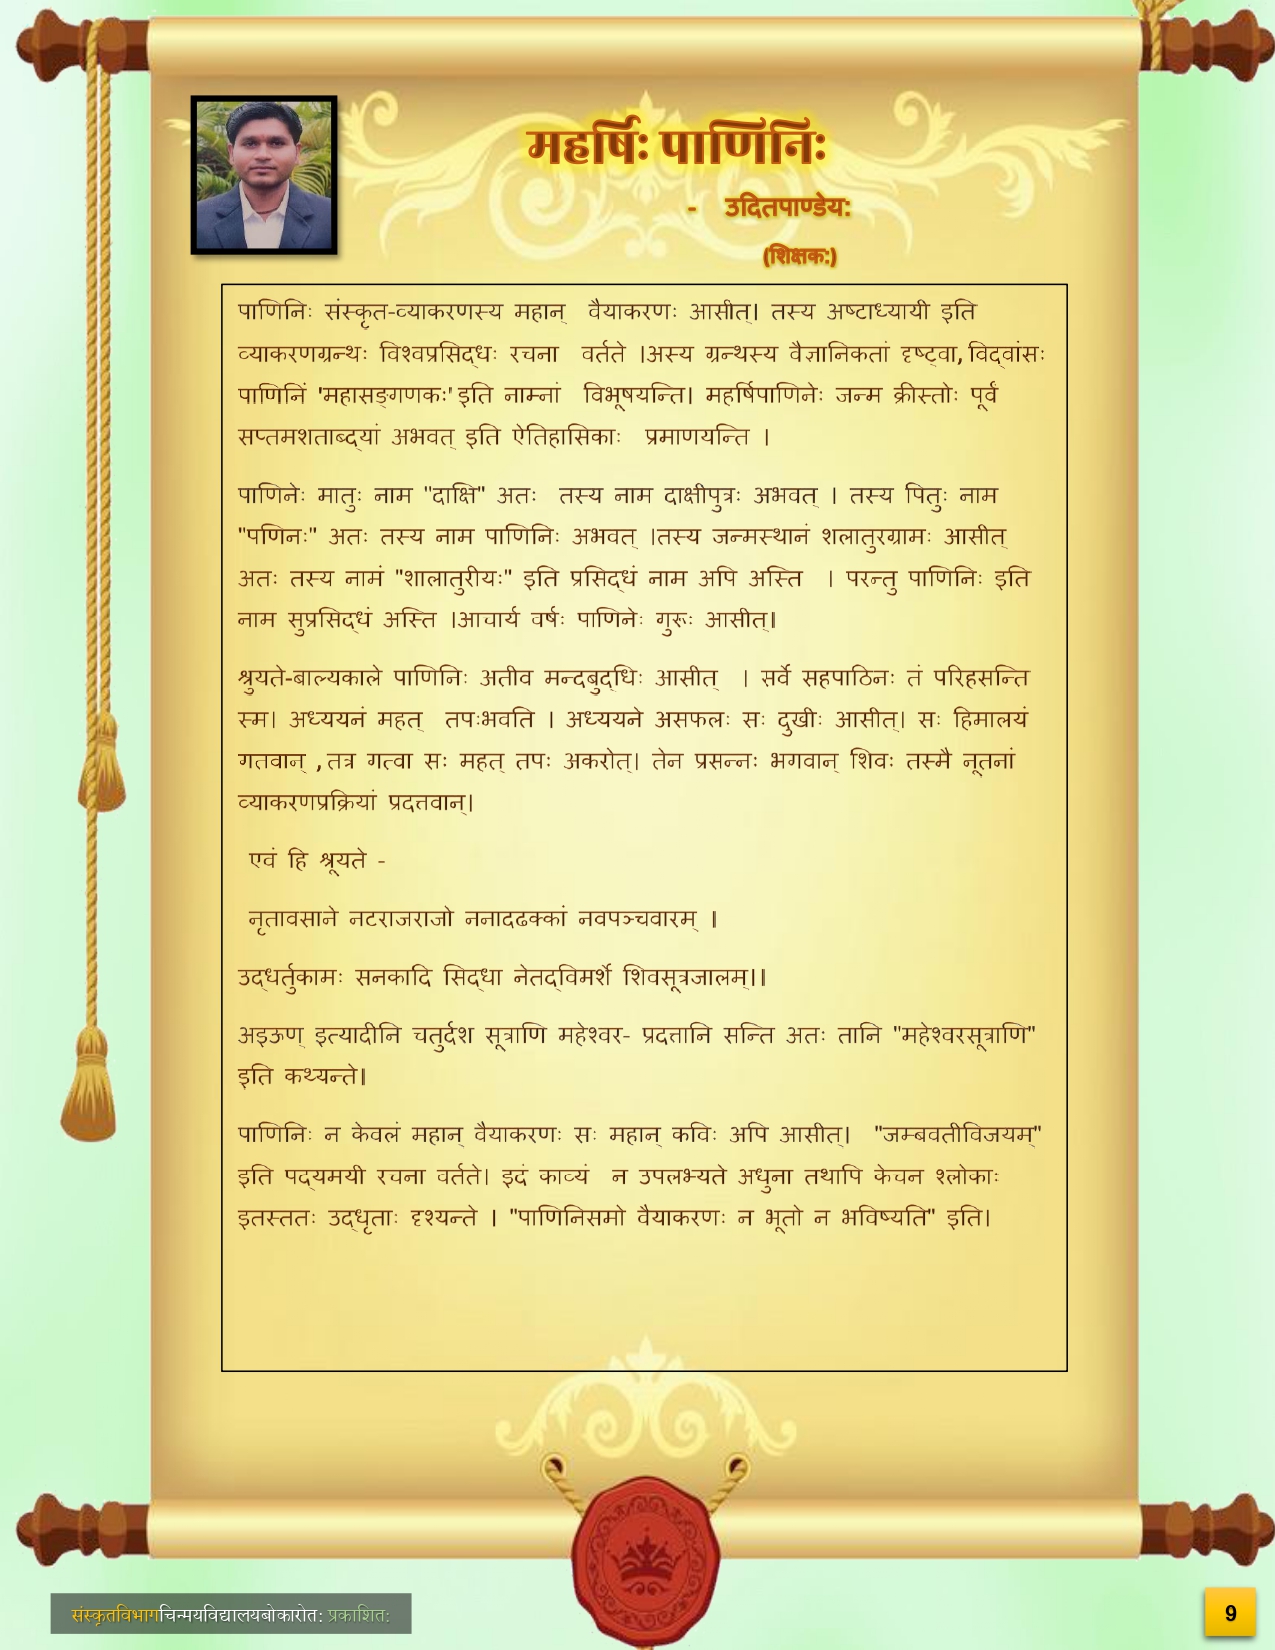 महर्षिः पाणिनिः
- उदितपाण्डेय:
(शिक्षक:)
पाणिनिः संस्कृत-व्याकरणस्य महान् वैयाकरणः आसीत्। तस्य अष्टाध्यायी इति
व्याकरणग्रन्थः विश्वप्रसिद्धः रचना वर्तते ।अस्य ग्रन्थस्य वैज्ञानिकतां दृष्ट्वा, विद्वांसः
पाणिनिं 'महासङ्गणकः' इति नाम्नां विभूषयन्ति। महर्षिपाणिनेः जन्म क्रीस्तोः पूर्वं
सप्तमशताब्द्यां अभवत् इति ऐतिहासिकाः प्रमाणयन्ति ।
पाणिनेः मातुः नाम "दाक्षि" अतः तस्य नाम दाक्षीपुत्रः अभवत् । तस्य पितुः नाम
"पणिनः" अतः तस्य नाम पाणिनिः अभवत् ।तस्य जन्मस्थानं शलातुरग्रामः आसीत्
अतः तस्य नामं "शालातुरीयः" इति प्रसिद्धं नाम अपि अस्ति । परन्तु पाणिनिः इति
नाम सुप्रसिद्धं अस्ति ।आचार्य वर्षः पाणिनेः गुरूः आसीत्॥
श्रुयते-बाल्यकाले पाणिनिः अतीव मन्दबुद्धिः आसीत् । सर्वे सहपाठिनः तं परिहसन्ति
स्म। अध्ययनं महत् तपःभवति । अध्ययने असफलः सः दुखीः आसीत्। सः हिमालयं
गतवान् , तत्र गत्वा सः महत् तपः अकरोत्। तेन प्रसन्नः भगवान् शिवः तस्मै नूतनां
व्याकरणप्रक्रियां प्रदत्तवान्।
एवं हि श्रूयते -
नृतावसाने नटराजराजो ननादढक्कां नवपञ्चवारम् ।
उद्धर्तुकामः सनकादि सिद्धा नेतद्विमर्शे शिवसूत्रजालम्।॥
अइऊण् इत्यादीनि चतुर्दश सूत्राणि महेश्वर- प्रदत्तानि सन्ति अतः तानि "महेश्वरसूत्राणि"
इति कथ्यन्ते॥
पाणिनिः न केवलं महान् वैयाकरणः सः महान् कविः अपि आसीत्। "जम्बवतीविजयम्"
इति पद्यमयी रचना वर्तते। इदं काव्यं न उपलभ्यते अधुना तथापि केचन श्लोकाः
इतस्ततः उद्धृताः दृश्यन्ते । "पाणिनिसमो वैयाकरणः न भूतो न भविष्यति" इति।
संस्कृतविभागचिन्मयविद्यालयबोकारोत: प्रकाशित:
9